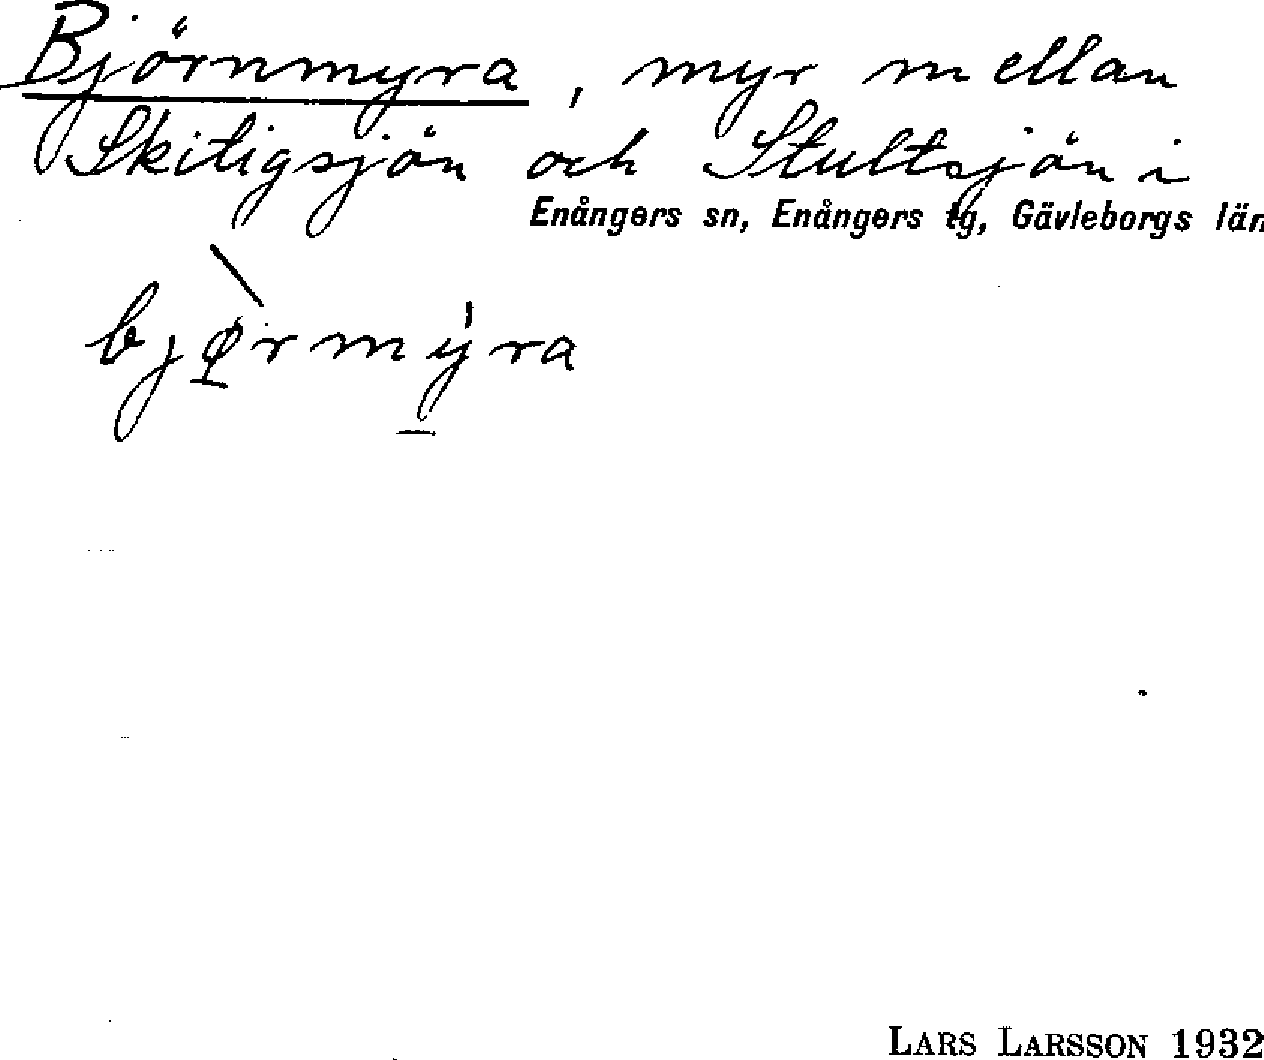 Björnmyra, myr mellan
Skitigsjön och Stultsjön i
Enångers sn, Enångers tg, Gävleborgs län
bjø̀rmýra
LARS LARSSON 1932